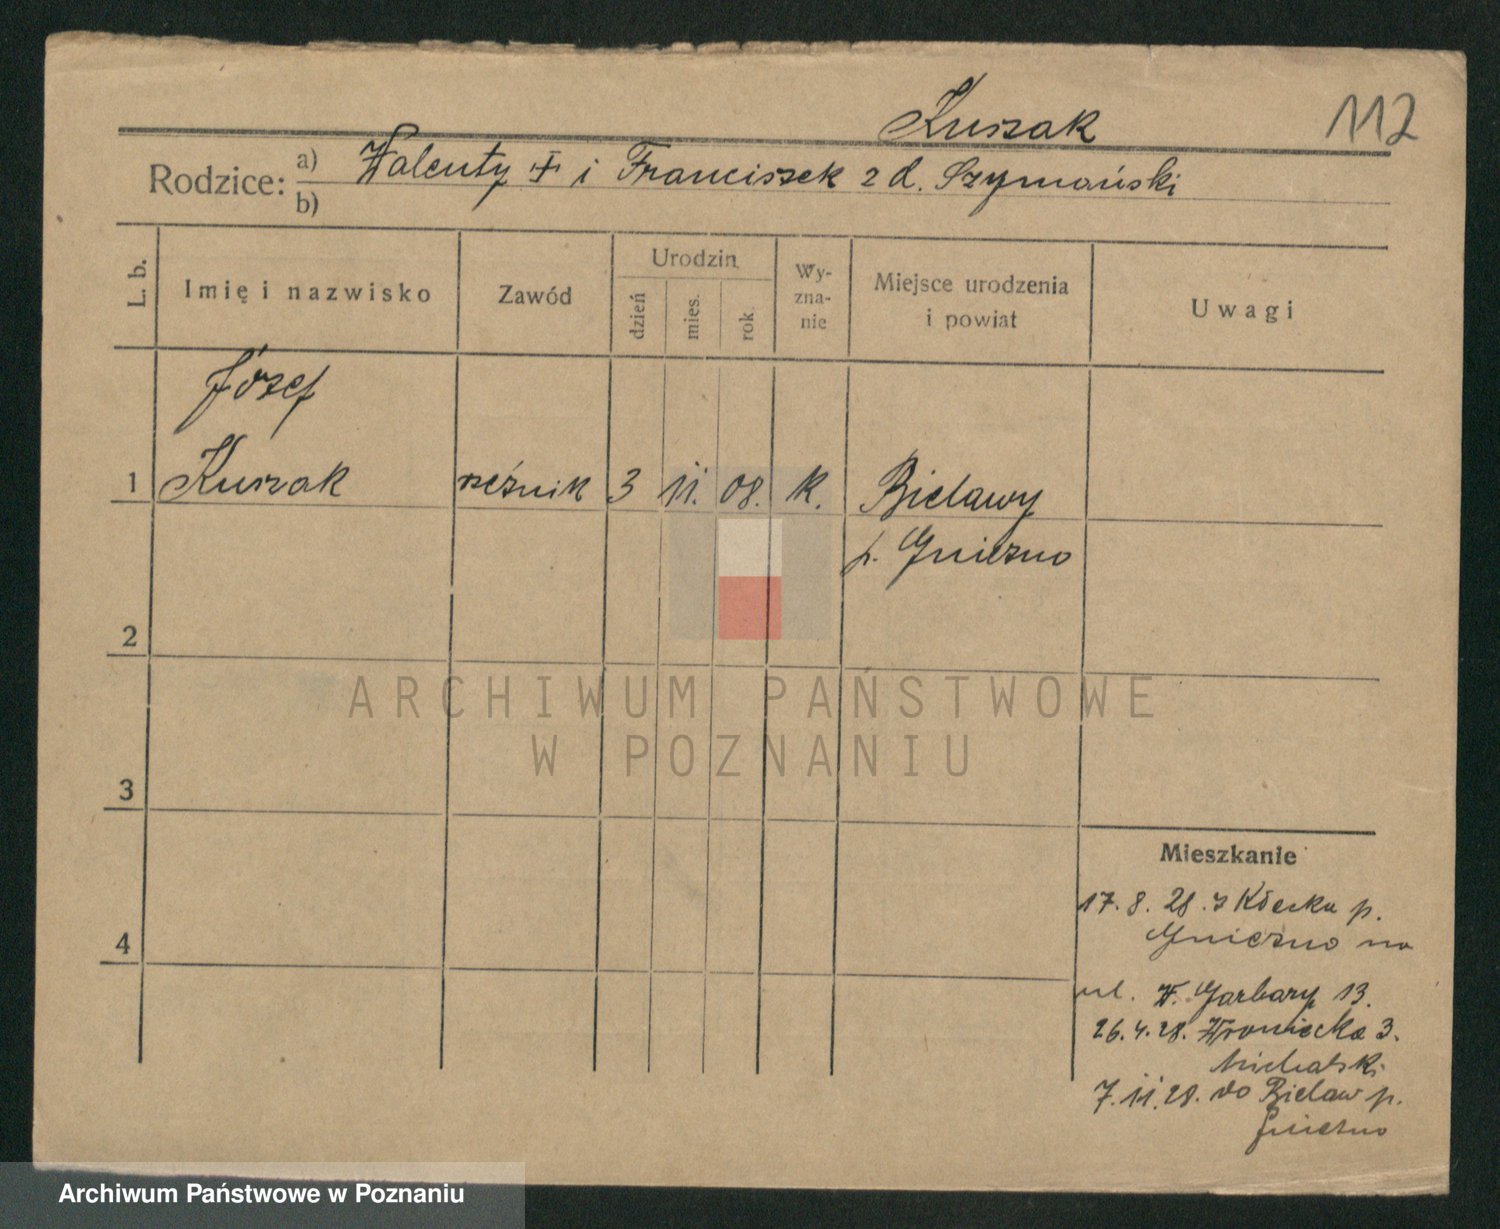 112
Kuszak
Rodzice: a) Walenty + i Franciszek z d. Szymański
b)
L. b.
Imię i nazwisko
Zawód
Urodzin
dzień
mies.
rok.
Wy-
zna-
nie
Miejsce urodzenia
i powiat
Uwagi
Józef
1 Kuszak rzeźnik 3 11. 08. K. Bielawy
p. Gniezno
2
3
4
ARCHIWUM PAŃSTWOWE
W POZNANIU
Mieszkanie
17. 8. 28. z Kłecka p.
Gniezno na
ul. W. Garbary 13.
26. 4. 28. Wroniecka 3.
Michalski
7. 11. 28. do Bielaw p.
Gniezno
Archiwum Państwowe w Poznaniu